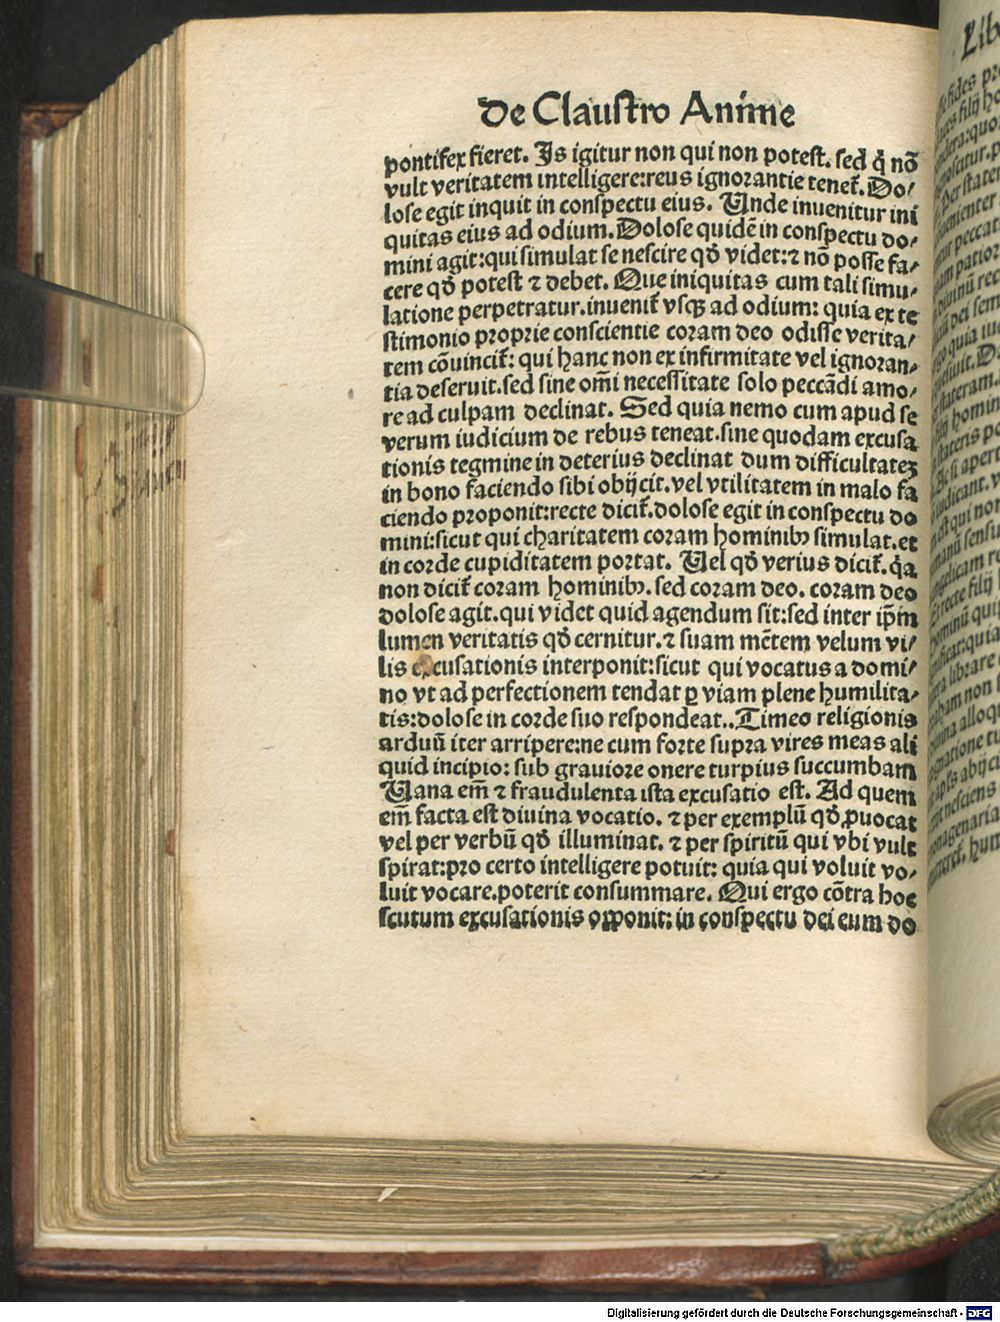 De Claustro Anime
pontifex fieret. Is igitur non qui non potest. sed q̇ nō
vult veritatem intelligere:reus ignorantie tenet̃. Do/
lose egit inquit in conspectu eius. Unde inuenitur ini
quitas eius ad odium. Dolose quidē in conspectu do/
mini agit:qui simulat se nescire qđ videt:⁊ nō posse fa/
cere qđ potest ⁊ debet. Que iniquitas cum tali simu/
latione perpetratur.inuenit̃ vsqꝫ ad odium: quia ex te
stimonio proprie conscientie coram deo odisse verita/
tem cōuincit̃: qui hanc non ex infirmitate vel ignoran/
tia deseruit.sed sine om̄i necessitate solo peccādi amo/
re ad culpam declinat. Sed quia nemo cum apud se
verum iudicium de rebus teneat.sine quodam excusa
tionis tegmine in deterius declinat dum difficultateꝫ
in bono faciendo sibi obijcit.vel vtilitatem in malo fa
ciendo proponit:recte dicit̃.dolose egit in conspectu do
mini:sicut qui charitatem coram hominibꝰ simulat.et
in corde cupiditatem portat. Uel qđ verius dicit̃.q̇a
non dicit̃ coram hominibꝰ. sed coram deo. coram deo
dolose agit.qui videt quid agendum sit:sed inter ip̄m
lumen veritatis qđ cernitur.⁊ suam mētem velum vi/
lis excusationis interponit:sicut qui vocatus a domi/
no vt ad perfectionem tendat ꝑ viam plene humilita/
tis:dolose in corde suo respondeat..Timeo religionis
arduū iter arripere:ne cum forte supra vires meas ali
quid incipio: sub grauiore onere turpius succumbam
Uana em̄ ⁊ fraudulenta ista excusatio est. Ad quem
em̄ facta est diuina vocatio. ⁊ per exemplū qđ ꝓuocat
vel per verbū qđ illuminat. ⁊ per spiritū qui vbi vult
spirat:pro certo intelligere potuit: quia qui voluit vo/
luit vocare.poterit consummare. Qui ergo cōtra hoc
scutum excusationis opponit: in conspectu dei eum do
Lib
Digitalisierung gefördert durch die Deutsche Forschungsgemeinschaft - DFG